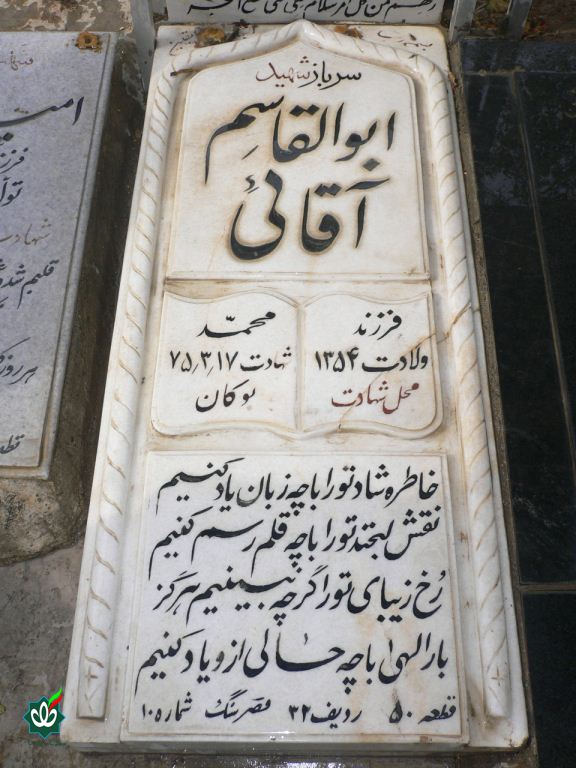 سرباز شهید
ابوالقاسم
آقائی
فرزند محمّد
ولادت ۱۳۵۴ شهادت ۷۵/۳/۱۷
محل شهادت بوکان
خاطره شاد تو را با چه زبان یاد کنیم
نقش لبخند تو را با چه قلم رسم کنیم
رُخ زیبای تو را گرچه نبینیم هرگز
بار الهیٰ با چه حالی از و یاد کنیم
قطعه ۵۰ ردیف ۳۲ شماره ۱۰
قصر سنگ